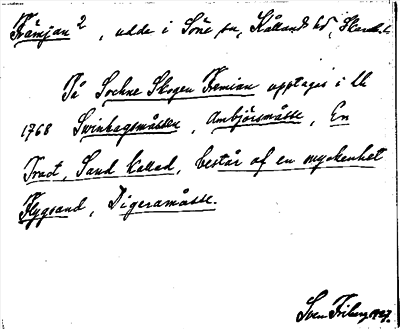 Främjan 2, udde i Söne sn, Kållands hd, Skarab. l.
På Sochne Skogen Fremian upptages i lk
1768 Swinhagsmåssen, Ambjörsmåsse, En
Tract, Sand kallad, består af en myckenhet
Flygsand, Digeramåsse.
Sven Friberg 1927.